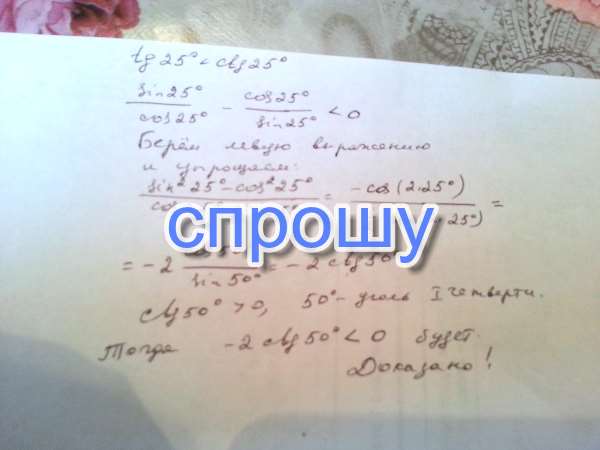 tg 25° < ctg 25°
sin25°/cos25° - cos25°/sin25° < 0
Берём левую выражению
и упрощаем:
sin² 25° - cos² 25° / cos = -cos(2·25°) / 25°) =
спрошу
= -2 / sin 50° = -2 ctg 50°
ctg 50° > 0, 50° - уголь I четверти.
Тогда -2 ctg 50° < 0 будет.
Доказано!